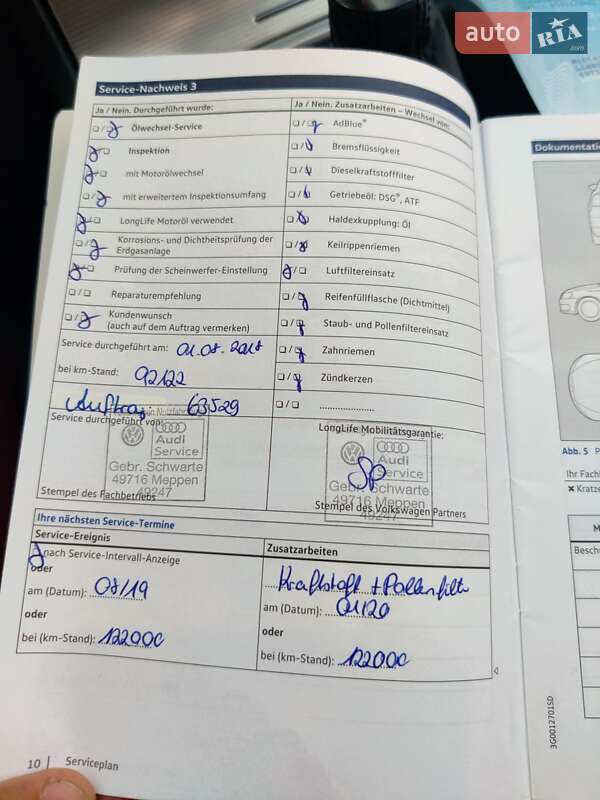 auto RIA.com
Service-Nachweis 3
Ja / Nein. Durchgeführt wurde:
Ölwechsel-Service
Inspektion
mit Motorölwechsel
mit erweitertem Inspektionsumfang
LongLife Motoröl verwendet
Korrosions- und Dichtheitsprüfung der
Erdgasanlage
Prüfung der Scheinwerfer-Einstellung
Reparaturempfehlung
Kundenwunsch
(auch auf dem Auftrag vermerken)
Service durchgeführt am: 01.08.2018
bei km-Stand: 92122
Auftrag 63529
Service durchgeführt von:
Audi
Service
Gebr. Schwarte
49716 Meppen
49247
Stempel des Fachbetriebs
Ja / Nein. Zusatzarbeiten – Wechsel von:
AdBlue®
Bremsflüssigkeit
Dieselkraftstofffilter
Getriebeöl: DSG®, ATF
Haldexkupplung: Öl
Keilrippenriemen
Luftfiltereinsatz
Reifenfüllflasche (Dichtmittel)
Staub- und Pollenfiltereinsatz
Zahnriemen
Zündkerzen
....................
LongLife Mobilitätsgarantie:
Audi
Service
Gebr. Schwarte
49716 Meppen
49247
Stempel des Volkswagen Partners
Ihre nächsten Service-Termine
Service-Ereignis
nach Service-Intervall-Anzeige
oder
am (Datum): 08/19
oder
bei (km-Stand): 122000
Zusatzarbeiten
Kraftstoff + Pollenfilter
am (Datum): 01/20
oder
bei (km-Stand): 122000
10 | Serviceplan
Dokumentati
Abb. 5
Ihr Fach
✖ Kratze
Besch
3G0012701SD